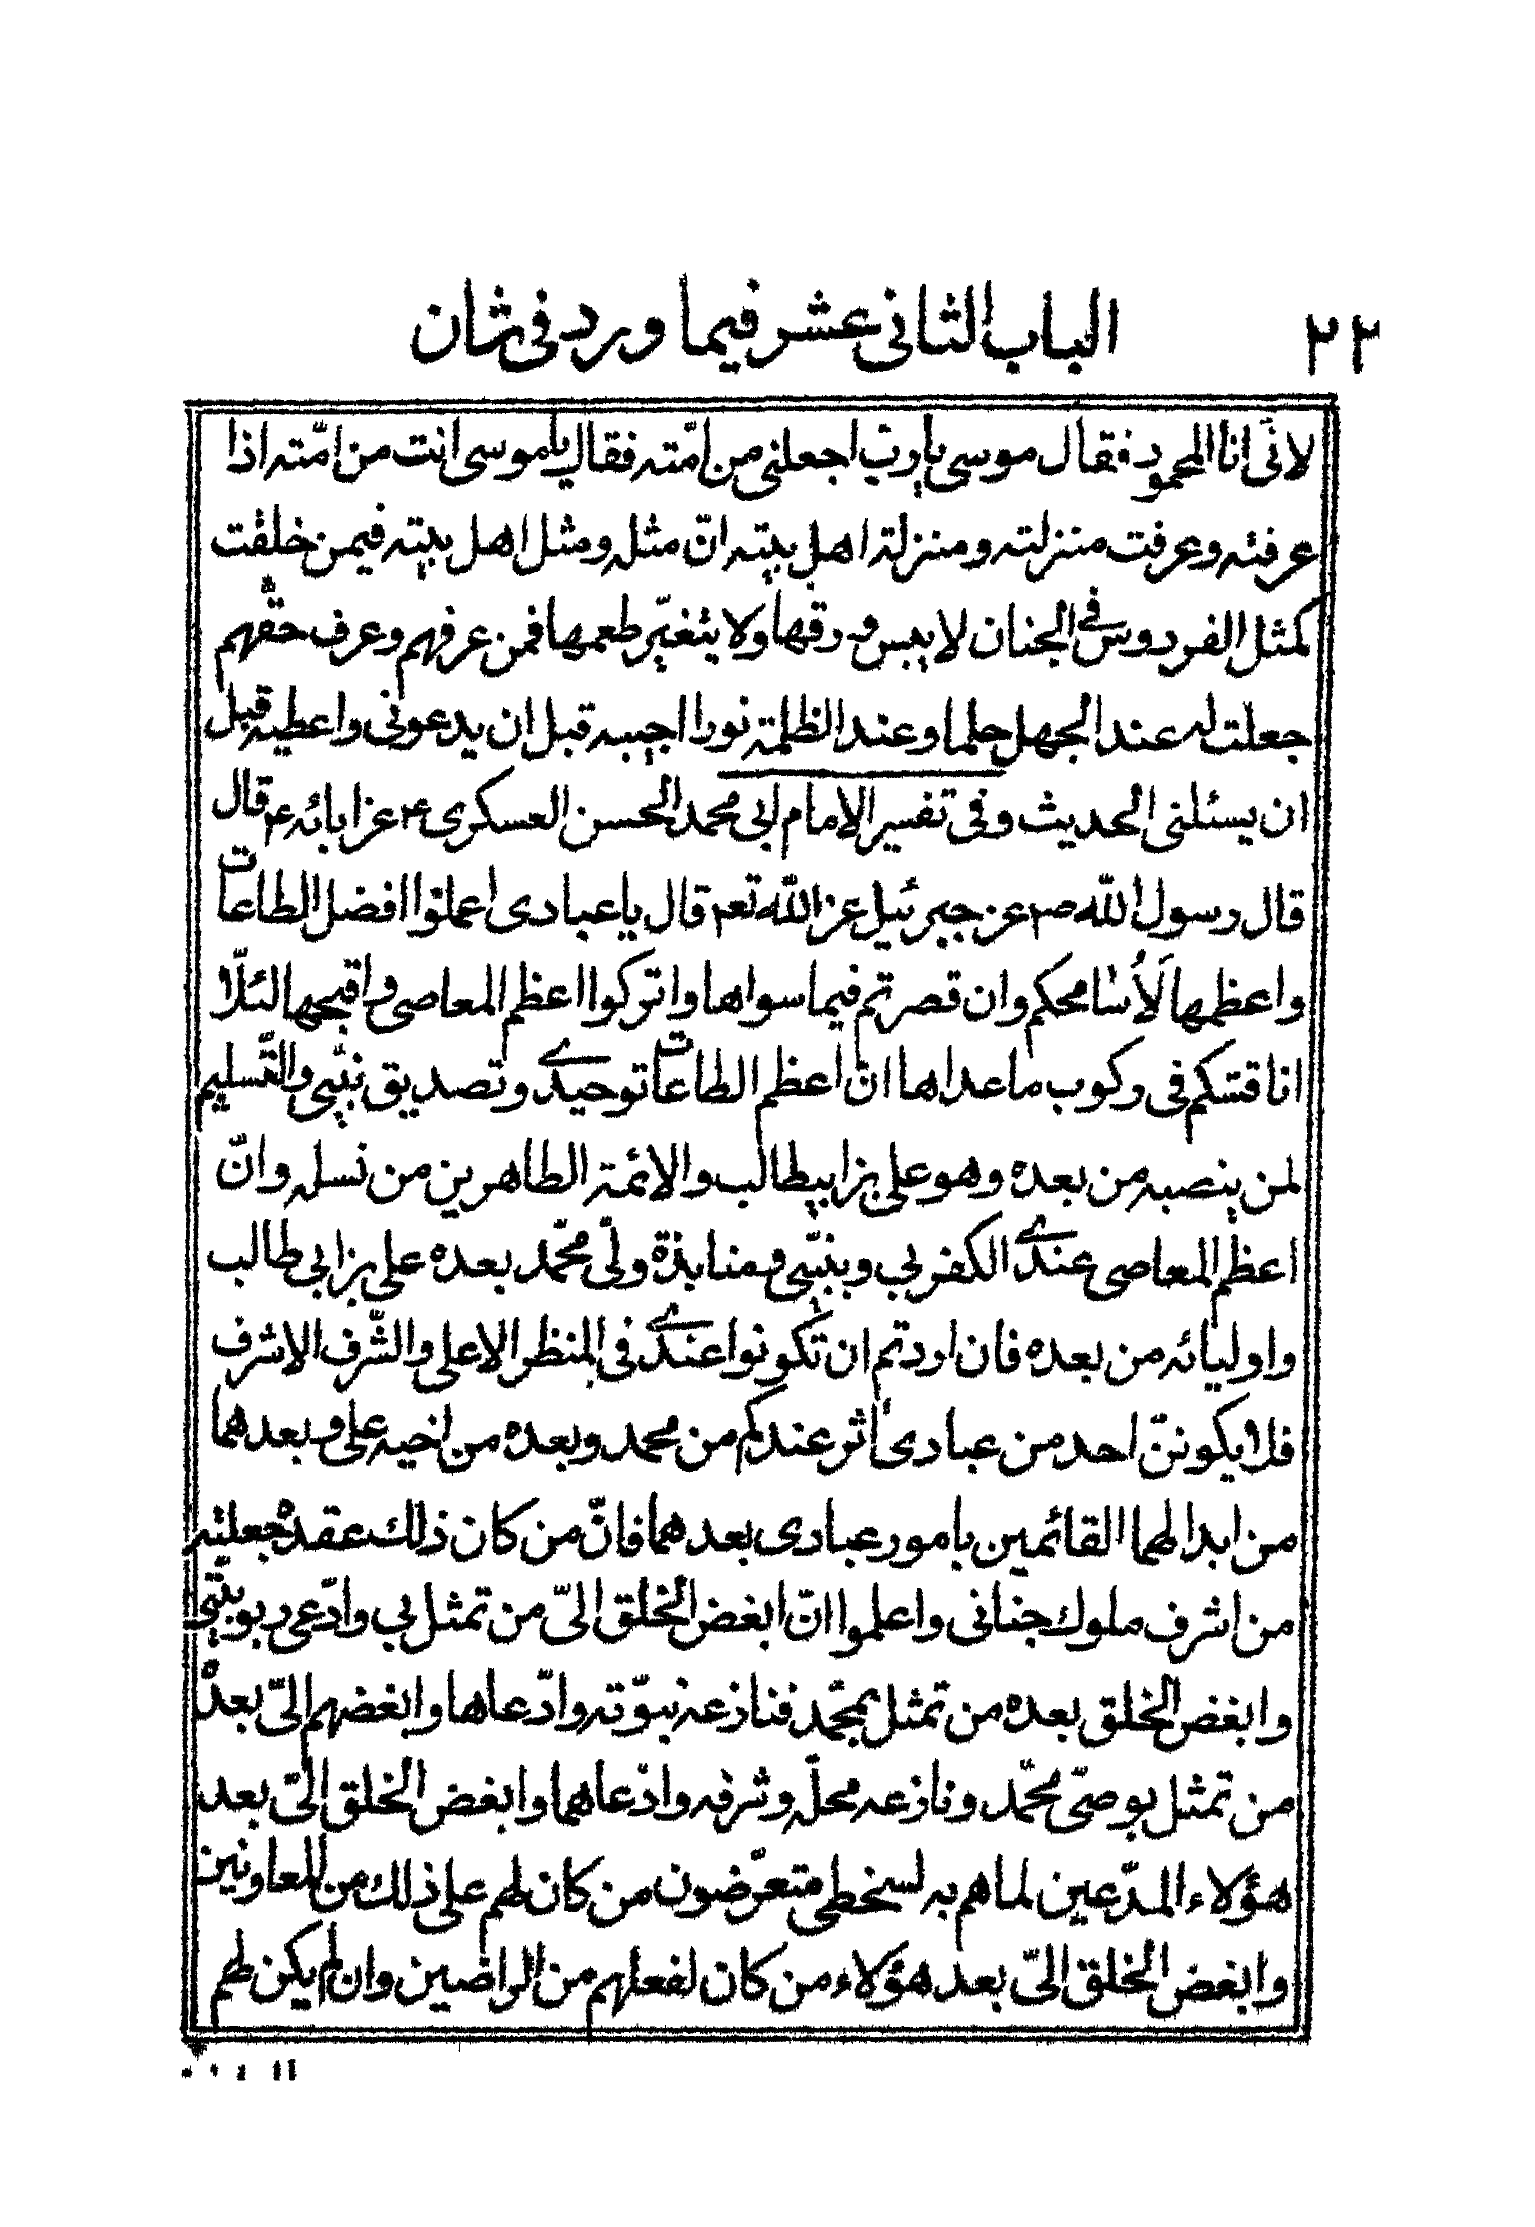 ٢٢ الباب الثانى عشر فيما ورد فى شان
لانّى انا المحمود فقال موسى يارب اجعلنى من امّته فقال ياموسى انت من امّته اذا
عرفته وعرفت منزلته ومنزلة اهل بيته انّ مثله ومثل اهل بيته فيمن خلقت
كمثل الفردوس فى الجنان لا ييبس ورقها ولا يتغيّر طعمها فمن عرفهم وعرف حقّهم
جعلت له عند الجهل حلما وعند الظلمة نورا اجيبه قبل ان يدعونى واعطيه قبل
ان يسئلنى الحديث وفى تفسير الامام ابى محمد الحسن العسكرى ع عن ابائه ع قال
قال رسول الله ص عن جبرئيل عن الله تع قال ياعبادى اعملوا افضل الطاعات
واعظمها لأسامحكم وان قصرتم فيما سواها واتركوا اعظم المعاصى واقبحها لئلّا
اناقشكم فى ركوب ماعداها انّ اعظم الطاعات توحيدى وتصديق نبيّى والتّسليم
لمن ينصبه من بعده وهو على بن ابيطالب والائمة الطاهرين من نسله وانّ
اعظم المعاصى عندى الكفر بي وبنبيّى ومنابذة ولّى محمّد بعده على بن ابي طالب
واوليائه من بعده فان اردتم ان تكونوا عندى فى المنظر الاعلى والشّرف الاشرف
فلا يكوننّ احد من عبادى اثر عندكم من محمد وبعده من اخيه على وبعدهما
من ابنائهما القائمين بامور عبادى بعدهما فانّ من كان ذلك عقده جعلته
من اشرف ملوك جنانى واعلموا انّ ابغض الخلق الىّ من تمثل بي وادّعى ربوبيتى
وابغض الخلق بعده من تمثل بمحمّد فنازعه نبوّته وادّعاها وابغضهم الىّ بعده
من تمثل بوصىّ محمّد ونازعه محلّه وشرفه وادّعاهما وابغض الخلق الىّ بعد
هؤلاء المدّعين لماهم به لسخطى متعرّضون من كان لهم على ذلك من المعاونين
وابغض الخلق الىّ بعد هؤلاء من كان لفعلهم من الراضين وان لم يكن لهم